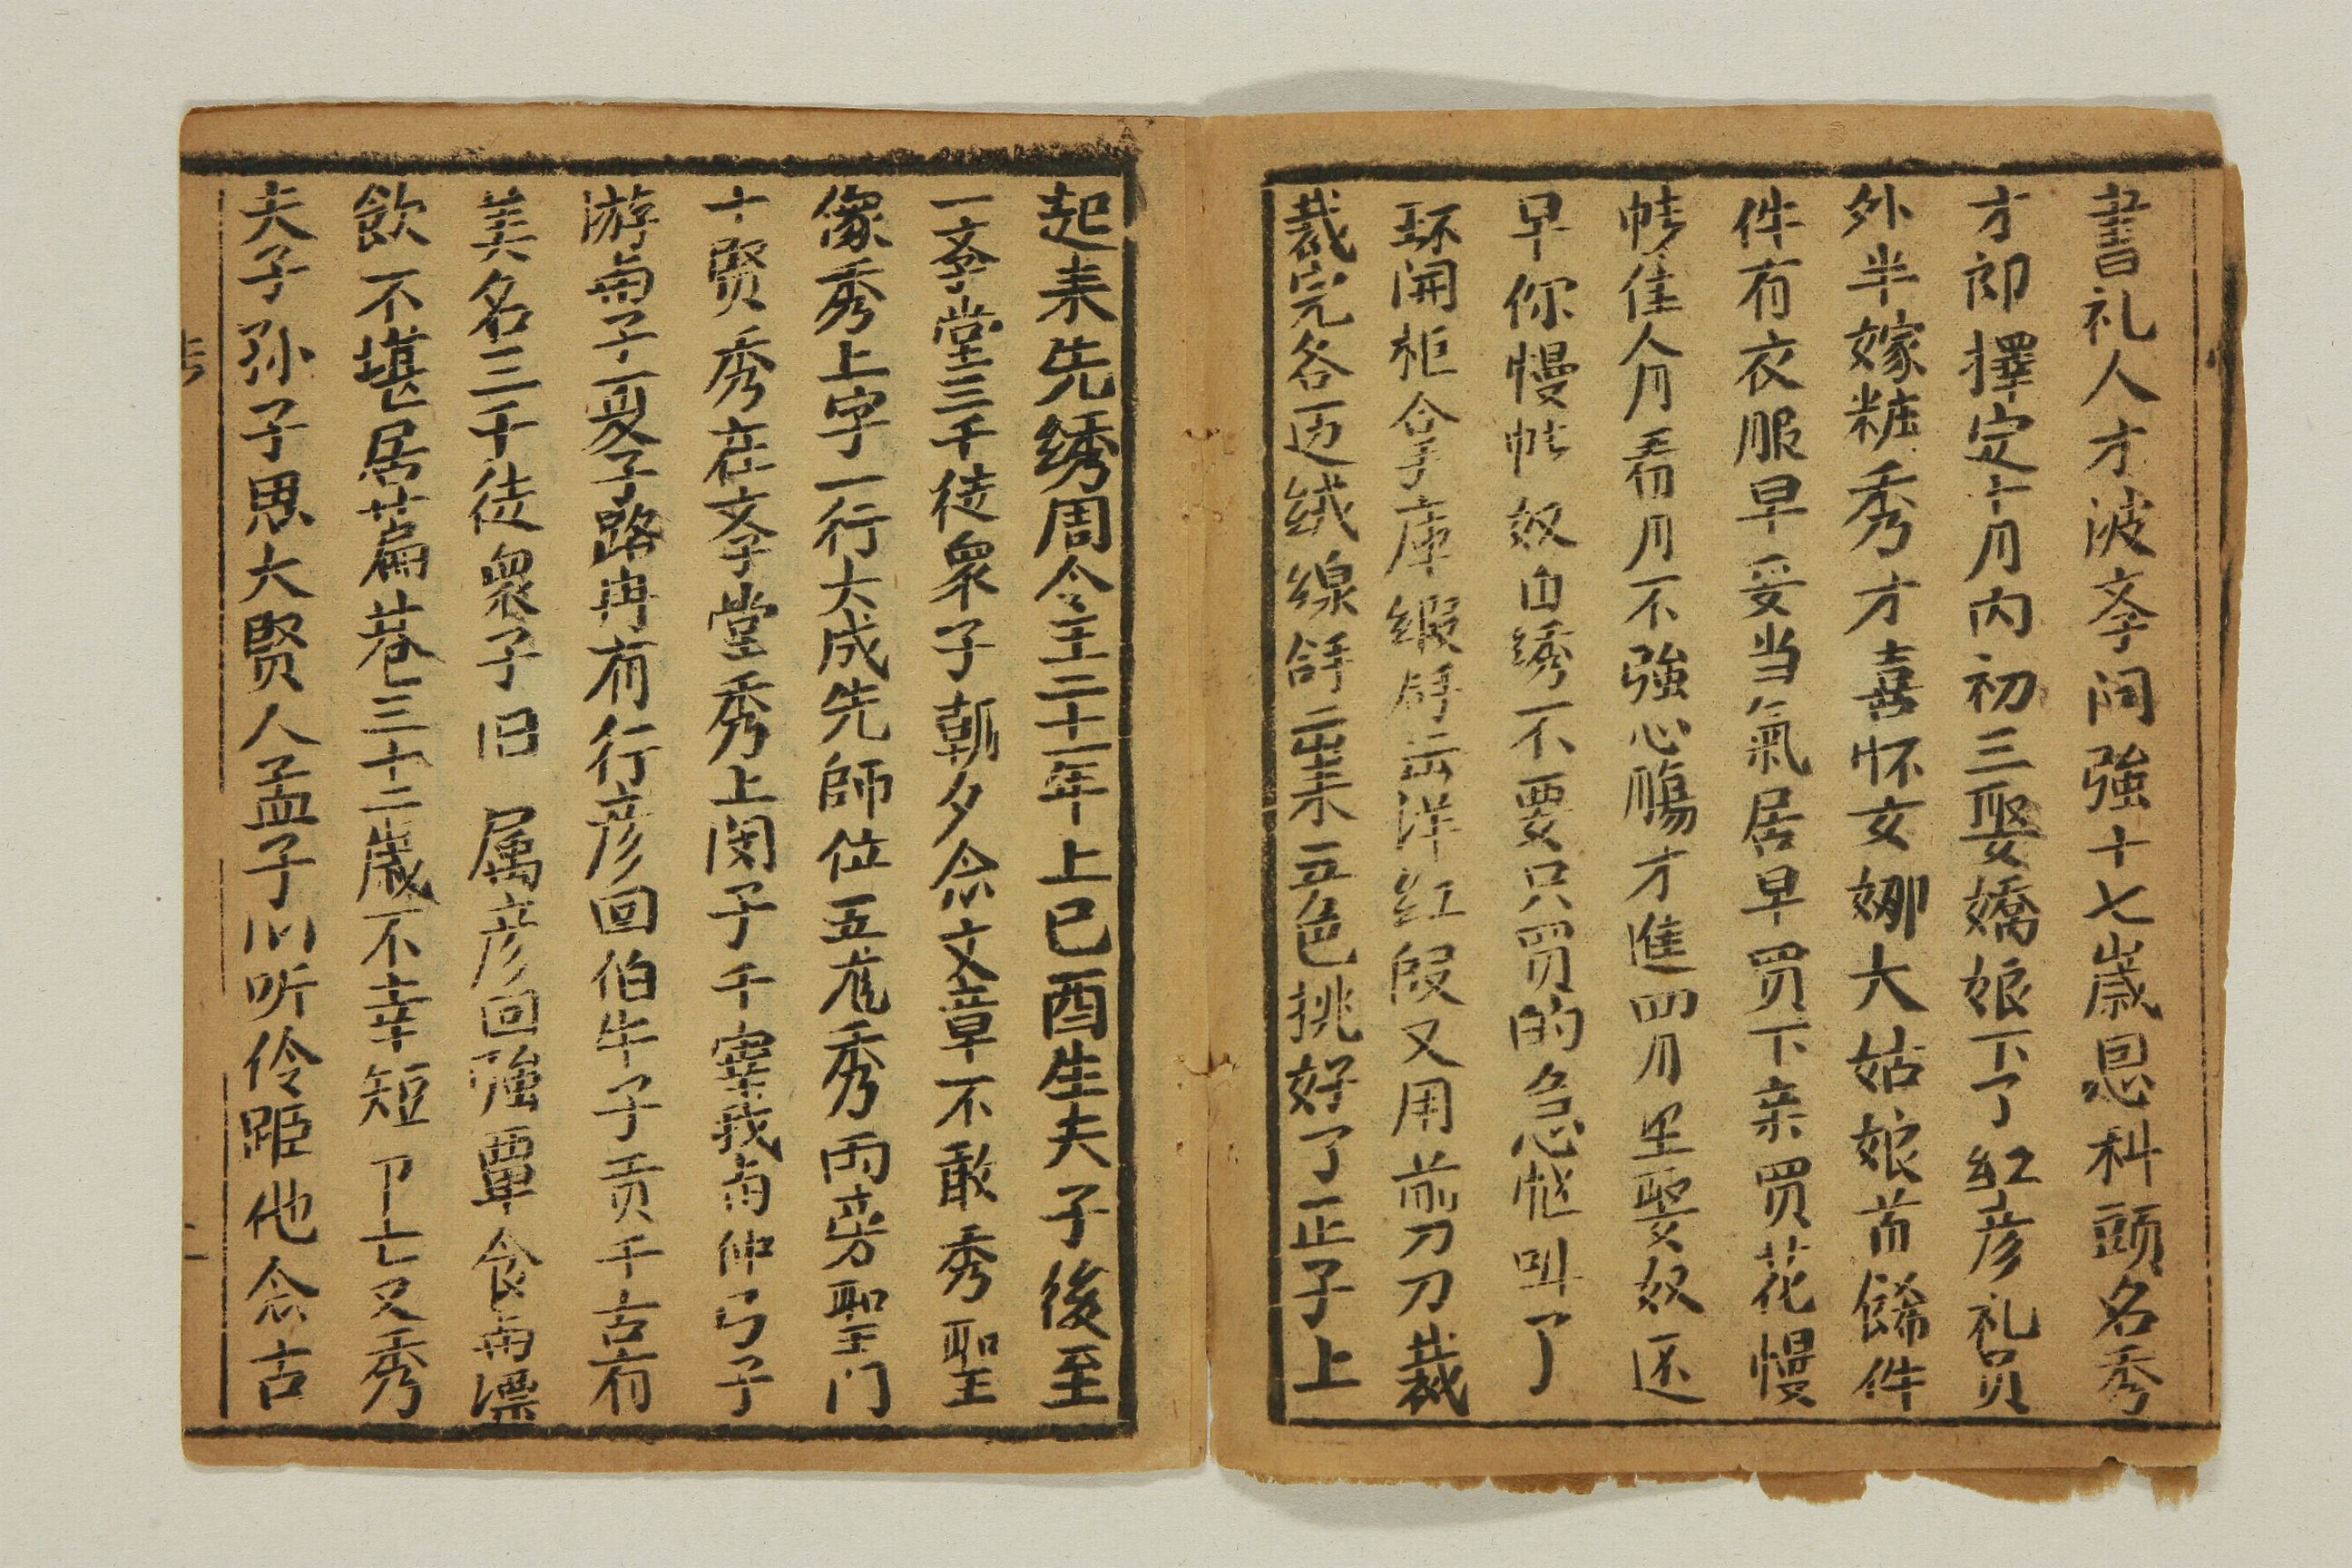 書礼人才波斈问強十七歳恩科頭名秀
才郎擇定十月内初三娶嬌娘下了紅彦礼员
外半嫁粧秀才喜怀女娜大姑娘首餙件
件有衣服早妥当氣居早買下来買花慢
帳佳人月看月不強心腸才進四月里娶奴还
早你慢帐奴自绣不要只買的急忙叫了
环開柜仓拿庫緞舒出洋红段又用前刀刀裁
裁完各迈絨線舒出来五色挑好了正子上
起来先绣周令主二十一年上巳酉生夫子後至
一斈堂三千徒衆子朝夕念文章不敢秀聖
像秀上字一行大成先師位五龙秀两旁聖门
十賢秀在文斈堂秀上闵子千宰我冉仲弓子
游冉子夏子路冉有行行彦回伯牛子贡千古有
美名三千徒衆子旧属彦回強單食冉漂
飲不堪居萹巷三十二歳不幸短卩亡又秀
夫子孙子思大賢人孟子川听伶跖他念古